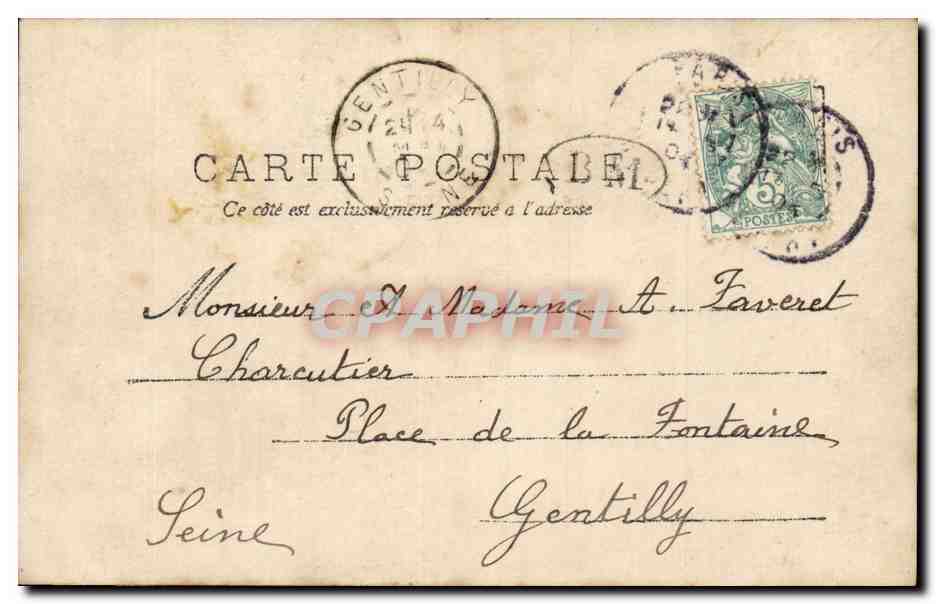 GENTILLY
CARTE POSTALE
BM
5
POSTES
Ce côté est exclusivement réservé a l'adresse
Monsieur et Madame A. Faveret
CPAPHIL
Charcutier
Place de la Fontaine
Gentilly
Seine